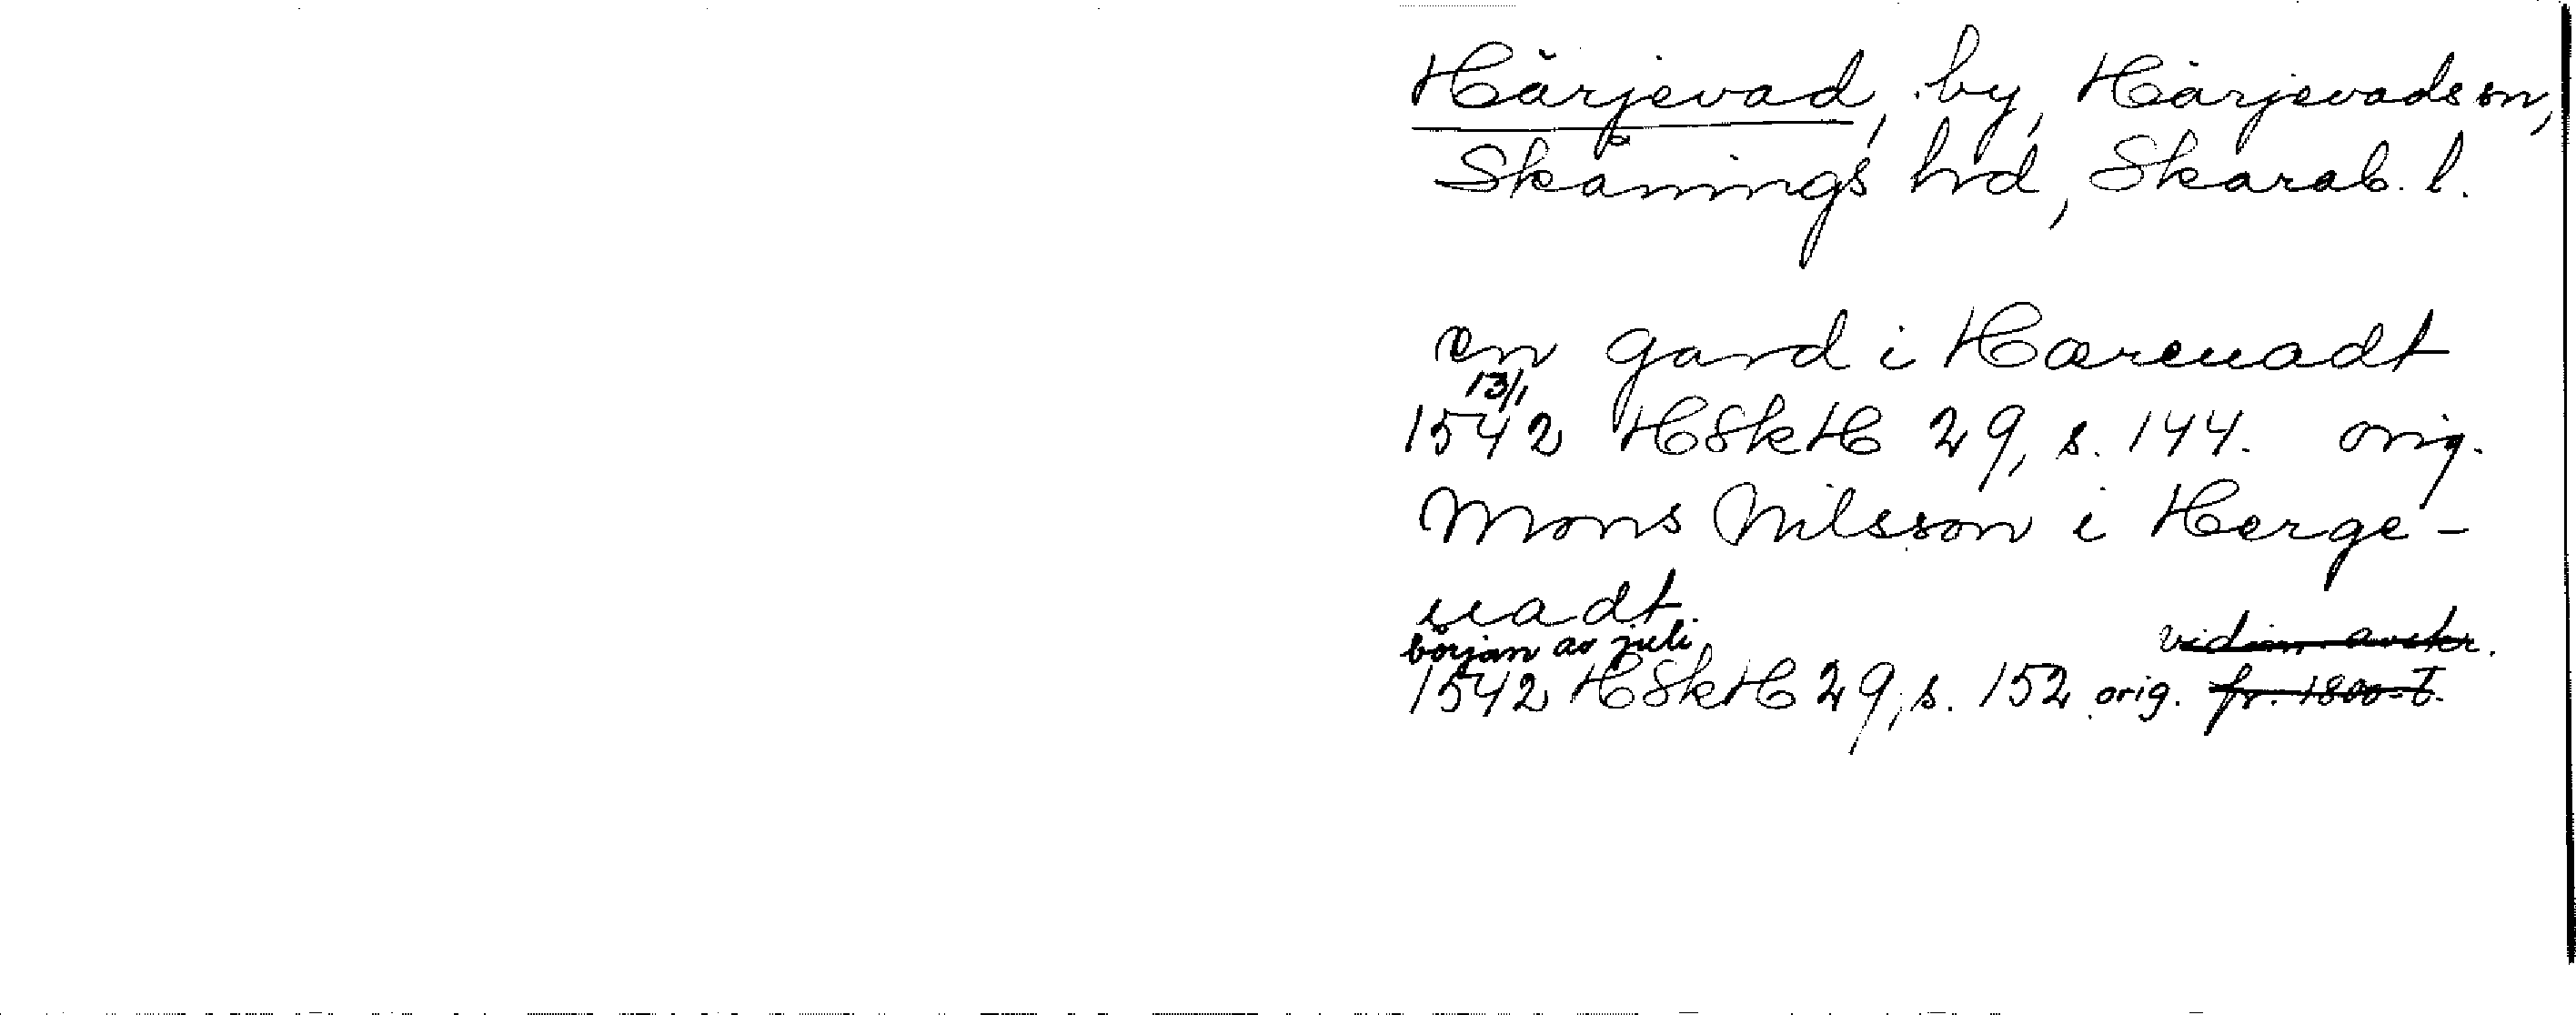 Härjevad, by, Härjevads sn,
Skånings hd, Skarab. l.
en gard i Hæreuadt
13/1
1542 HSkH 29, s. 144. orig.
Mons Nilsson i Herge-
uadt.
början av juli vidim. avskr.
1542 HSkH 29, s. 152 orig. fr. 1800-t.